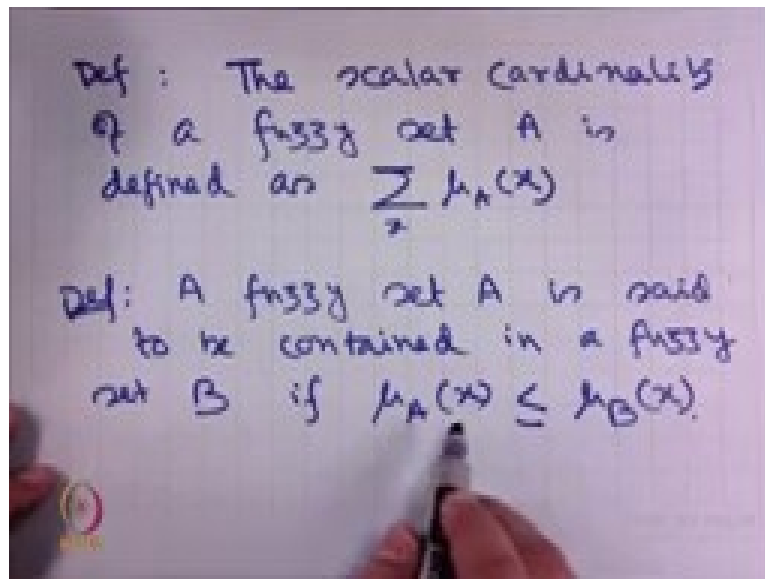 Def : The scalar Cardinality
of a fuzzy set A is
defined as ∑ₓ μ_A(x)
Def: A fuzzy set A is said
to be contained in a fuzzy
set B if μ_A(x) ≤ μ_B(x).